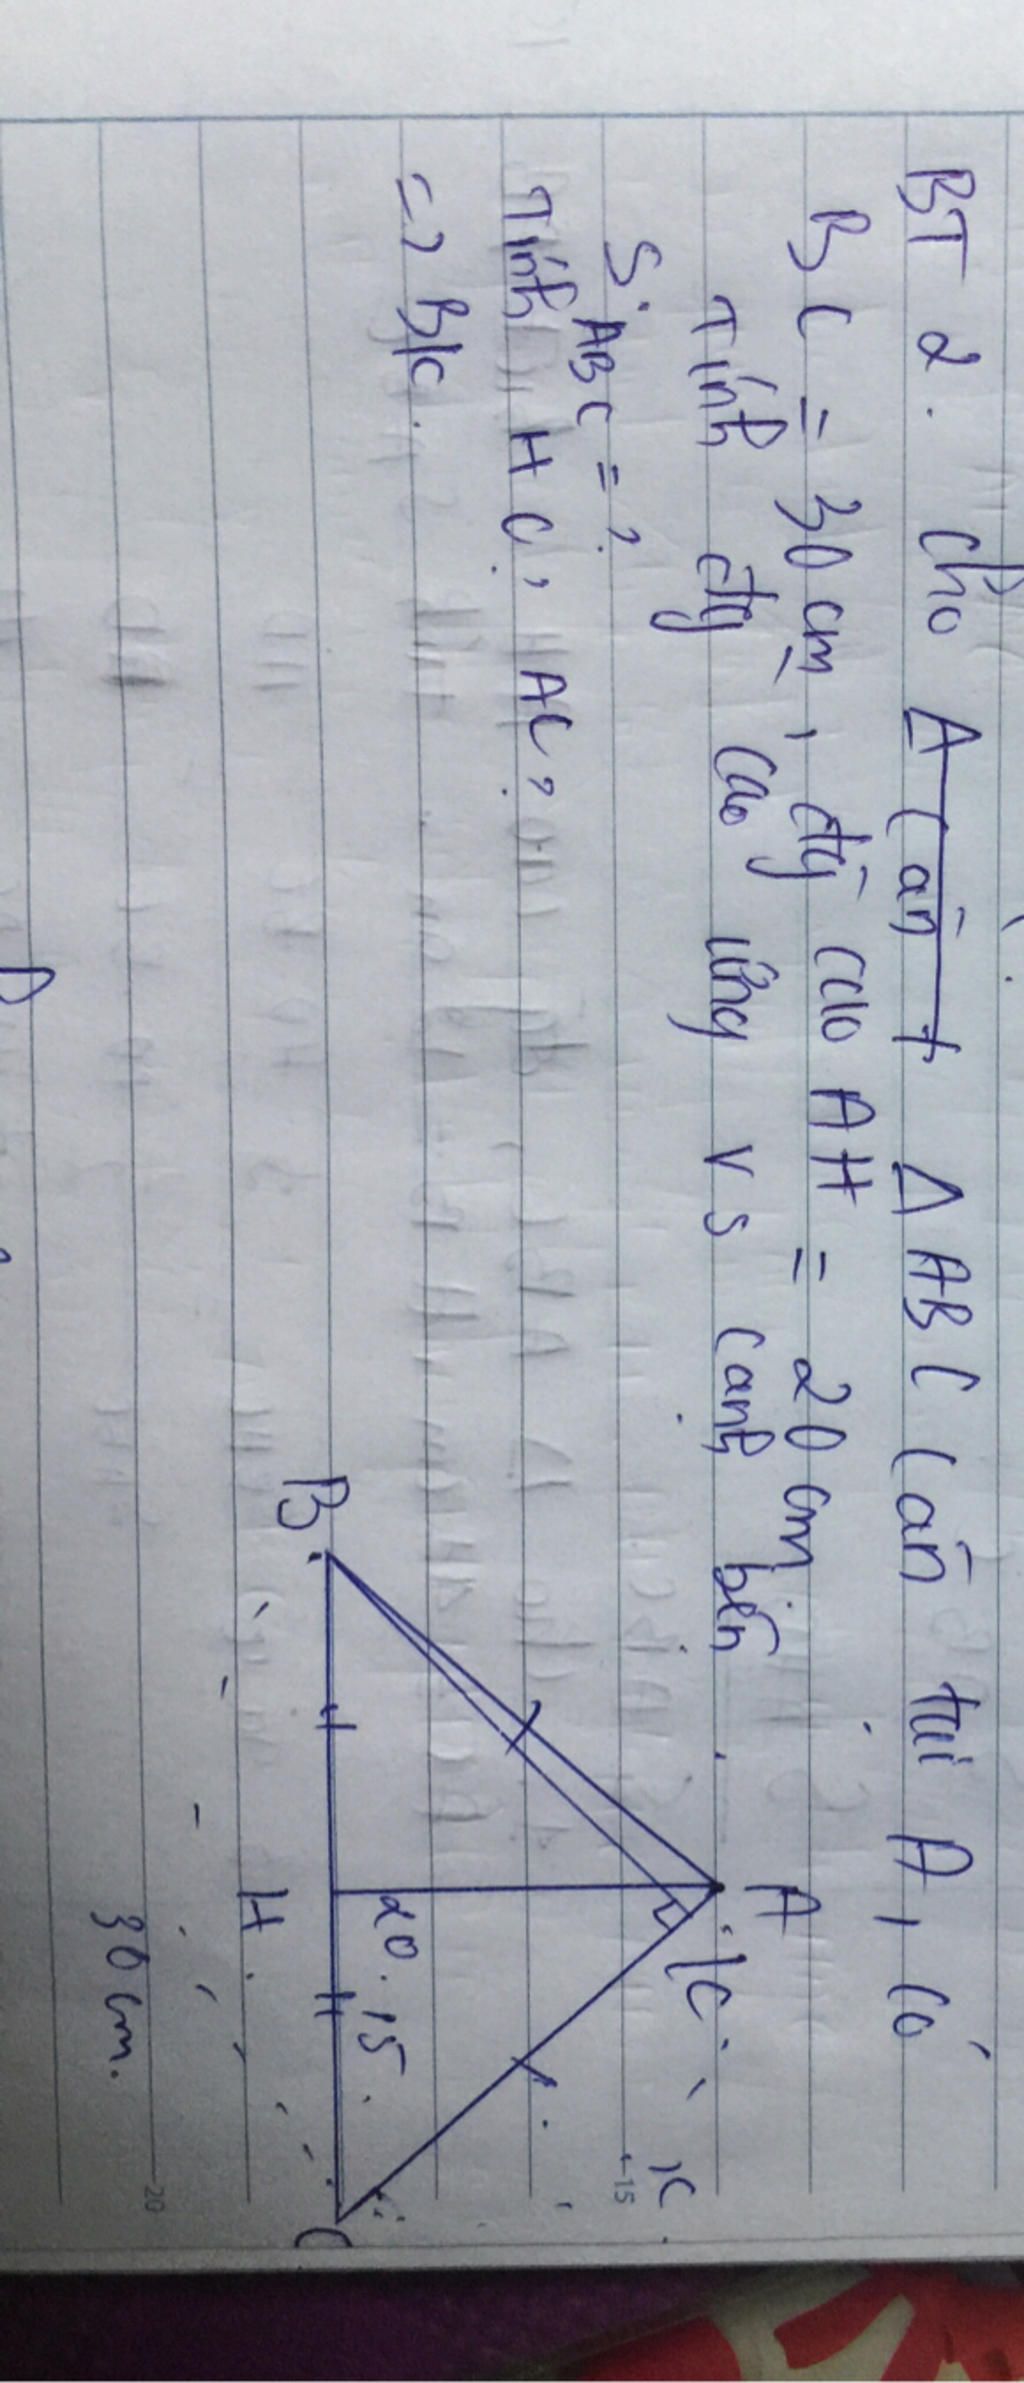 BT 2. Cho A cân t ΔABC cân tại A, có
BC = 30 cm, đg cao AH = 20 cm
Tính đg cao ứng vs cạnh bên
S ABC = ?
Tính HC, AC,
=> BK.
A
K
K
B
H
C
20
15
30 cm.
15
20